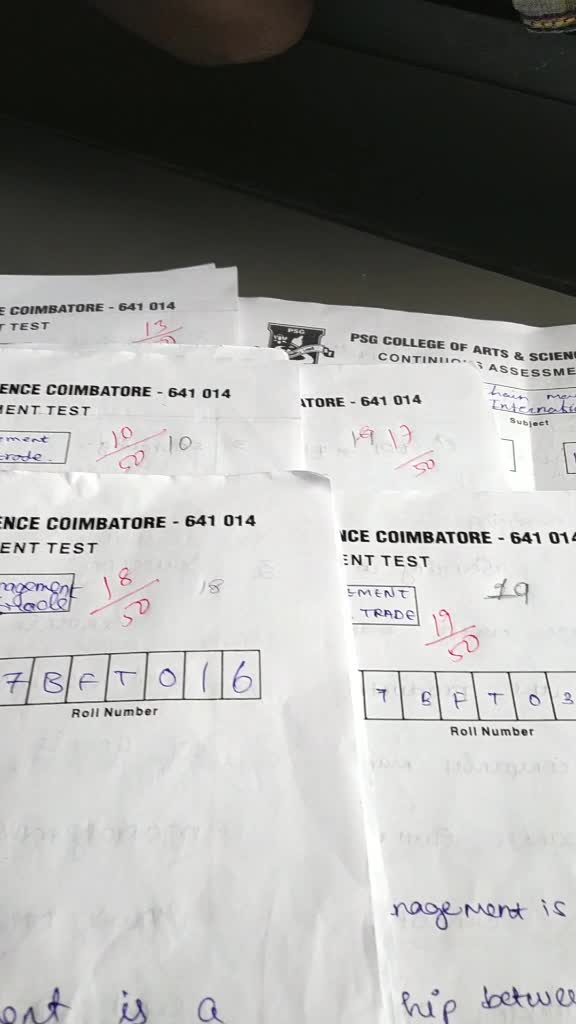 E COIMBATORE - 641 014
T TEST
13
PSG
PSG COLLEGE OF ARTS & SCIEN
ASSESSME
Internati
Subject
ENCE COIMBATORE - 641 014
MENT TEST
ement
trade.
10
50
10
ATORE - 641 014
17
50
ENCE COIMBATORE - 641 014
ENT TEST
nagement
18
50
18
7 B F T 0 1 6
Roll Number
NCE COIMBATORE - 641 014
ENT TEST
EMENT
TRADE
19
19
50
7 B F T 0 3
Roll Number
nagement is
ent is a
hip betwee